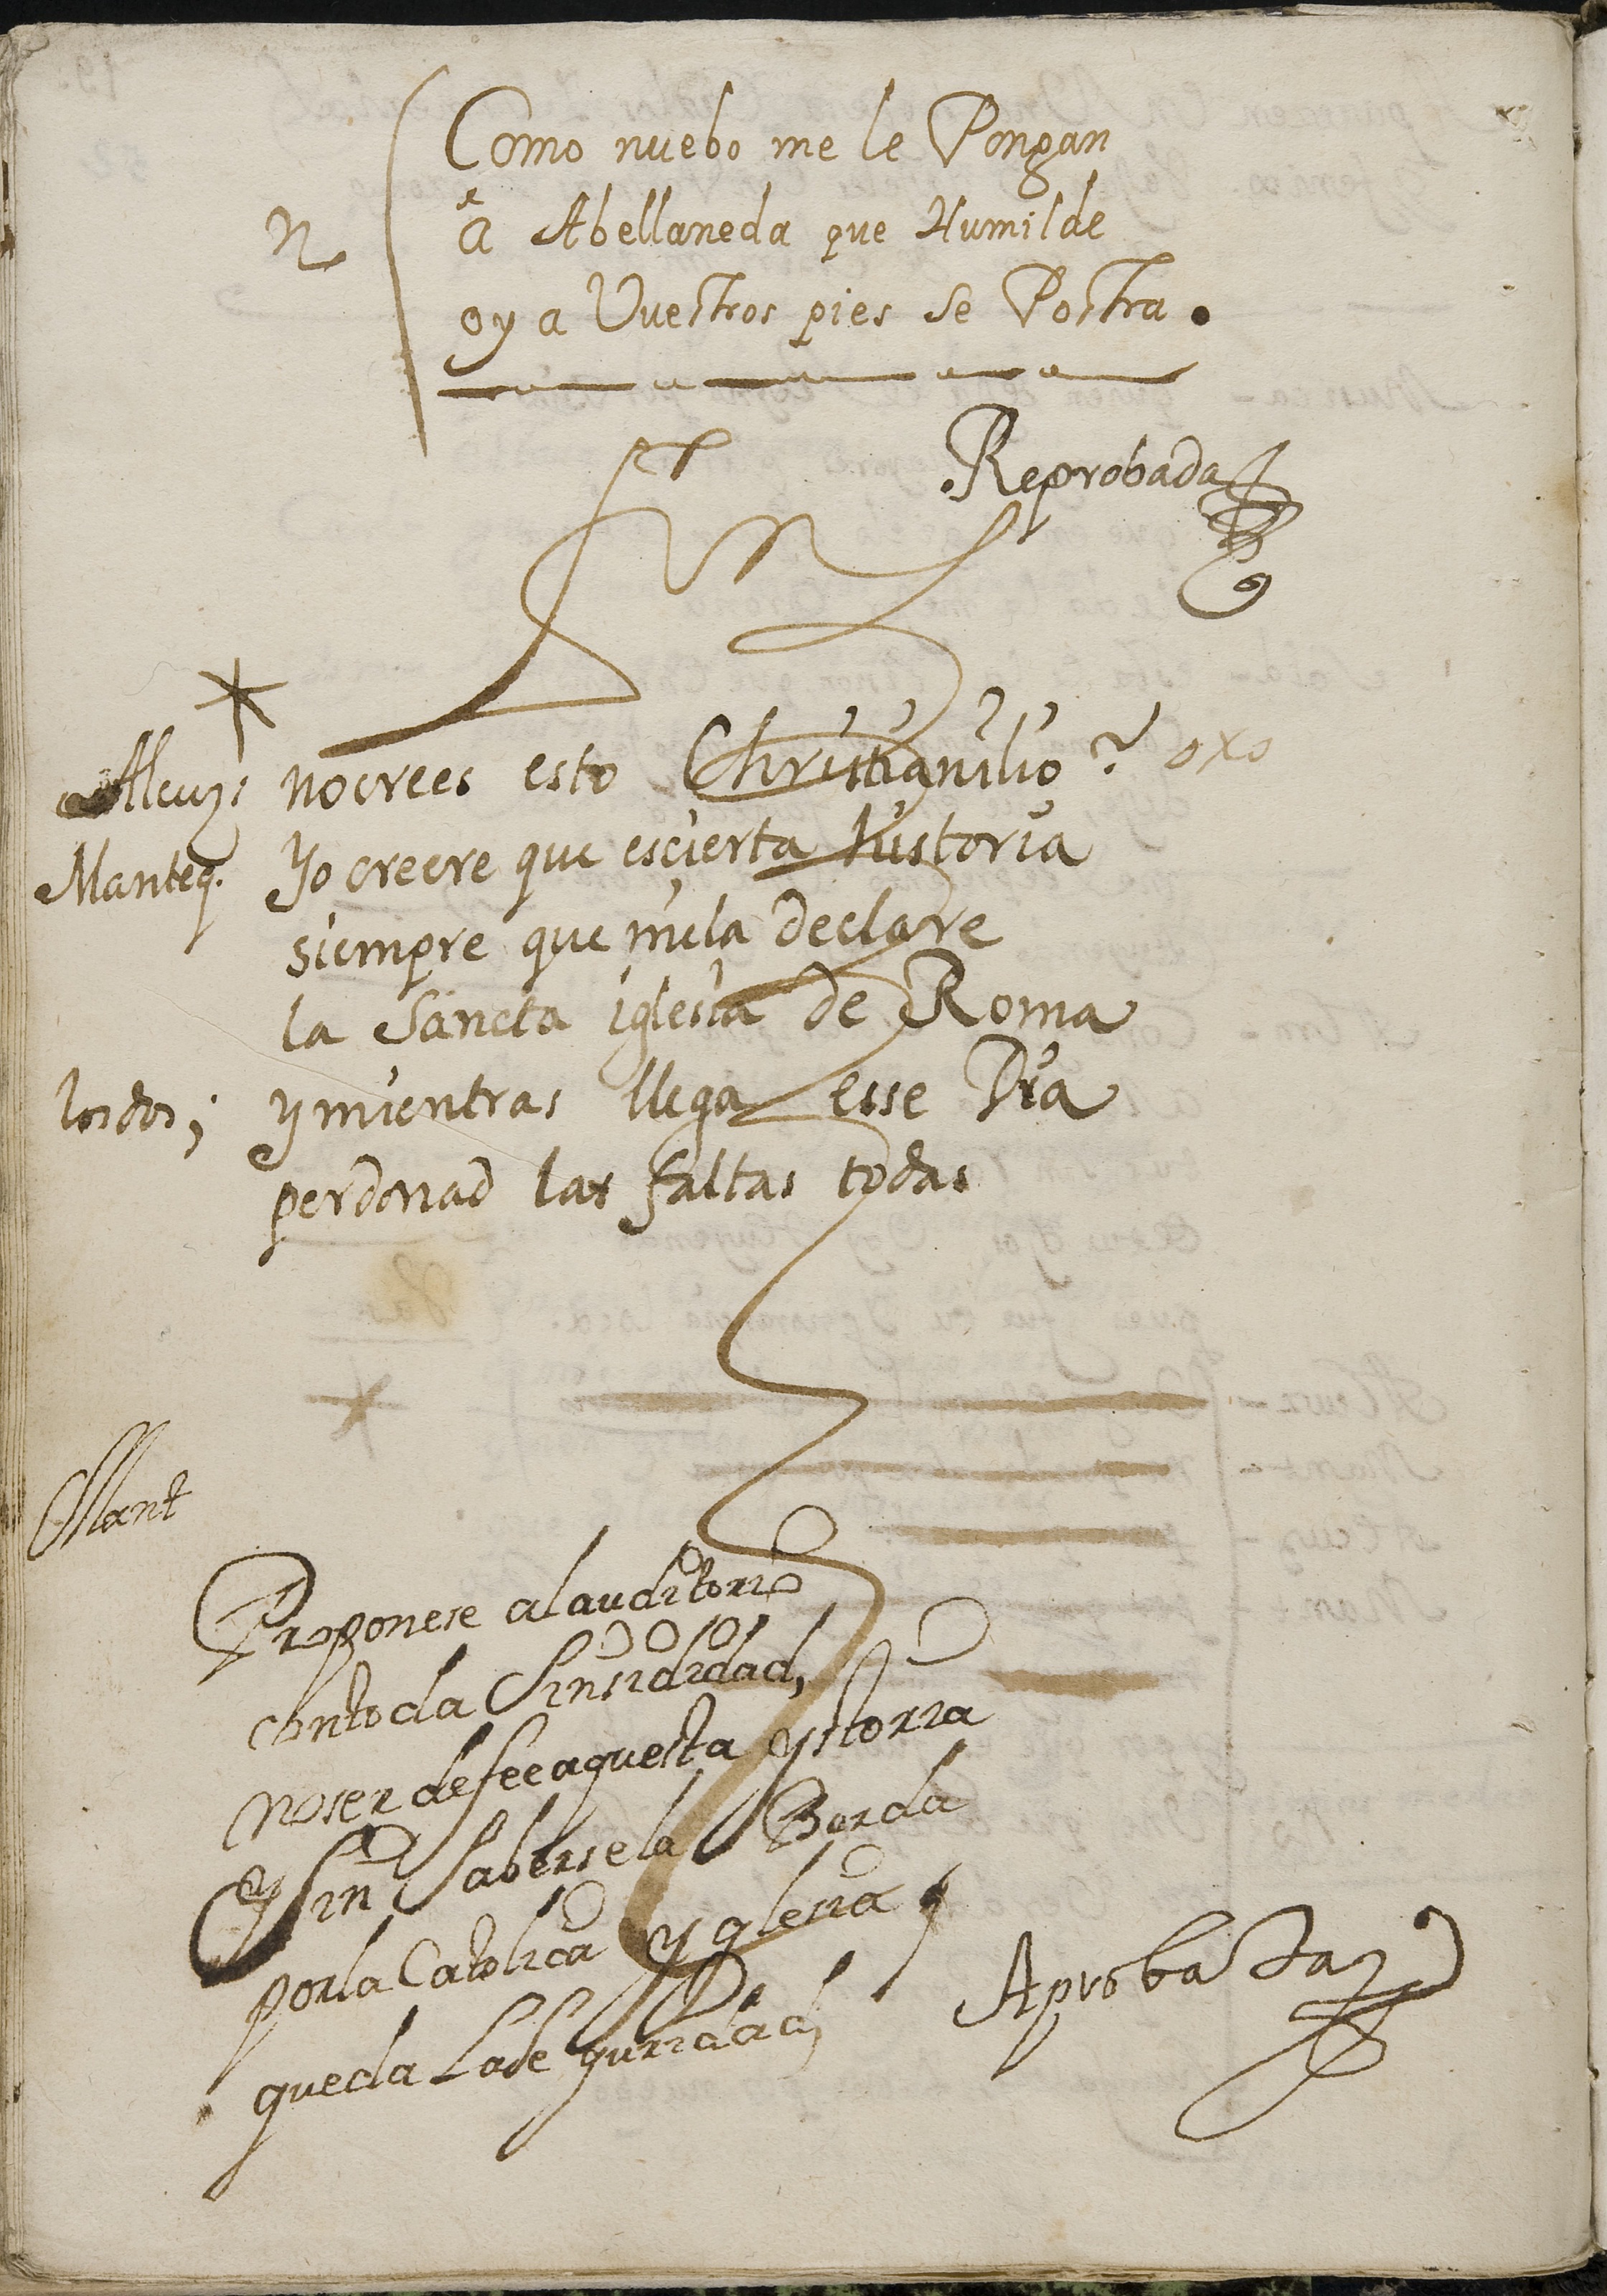 Como nuebo me le Pongan
n a Abellaneda que Humilde
oy a Vuestros pies se Postra.
Reprobada
Alcuz: no crees esto Christianilio? oxo
Manteq. Yo creere que es cierta historia
siempre que mela declare
la Sancta iglesia de Roma
los dos; y mientras llega esse Dia
perdonad las faltas todas
Mant
Proponese al auditorio
con toda Sinsididad,
no ser de fee aquesta ystoria
Y sin sabersela Borda
por la Catolica Yglesia
queda
Aprobada